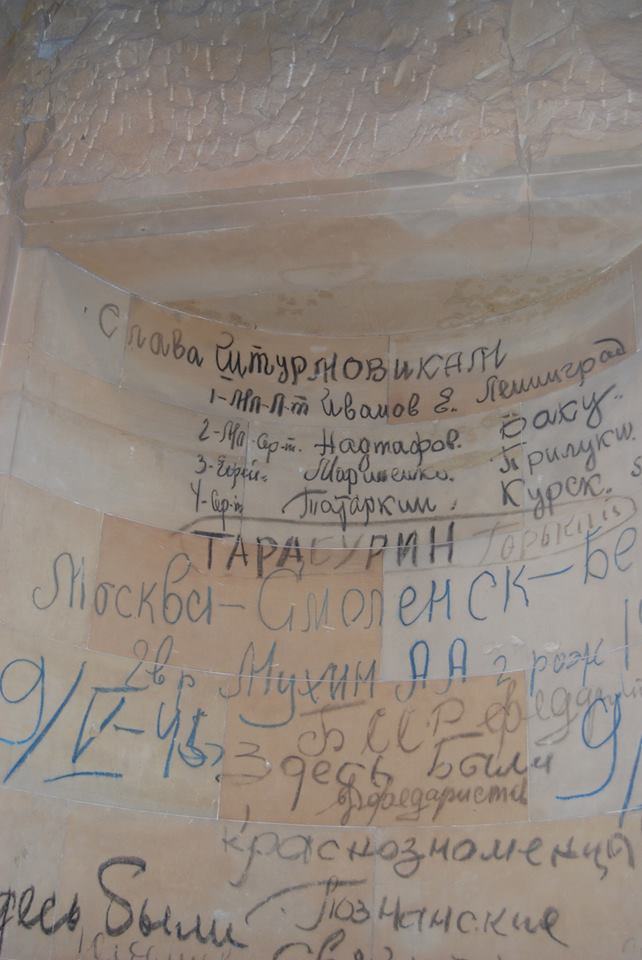 Слава Штурмовикам
1-Мл-Л-т Иванов Е. Ленинград
2-Мл-Сер-т. Надтафов. Баку.
3- Мариненко. Прилуки.
4-Сер-т Татаркин. Курск.
ТАРАБУРИН Горький
Москва-Смоленск-Бе
Мухин АА г рож
9/V-45г. 9/
БССР
Здесь Были
Краснознаменцы
десь были Познанские